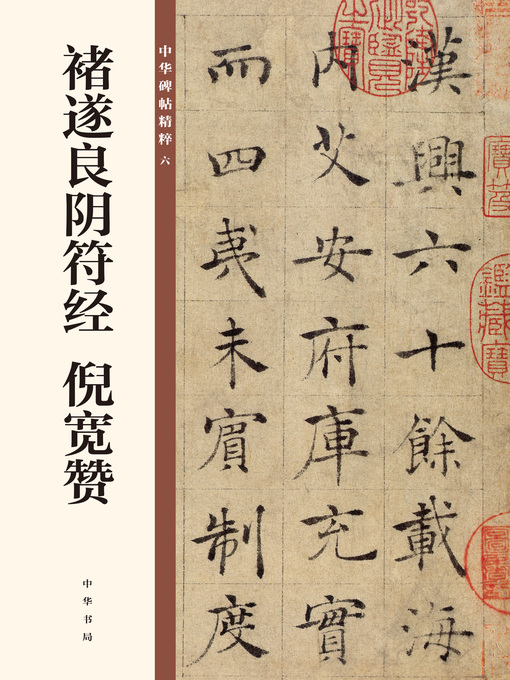 褚遂良阴符经 倪宽赞
中华碑帖精粹 六
中华书局
漢興六十餘載海
内艾安府庫充實
而四夷未賓制度